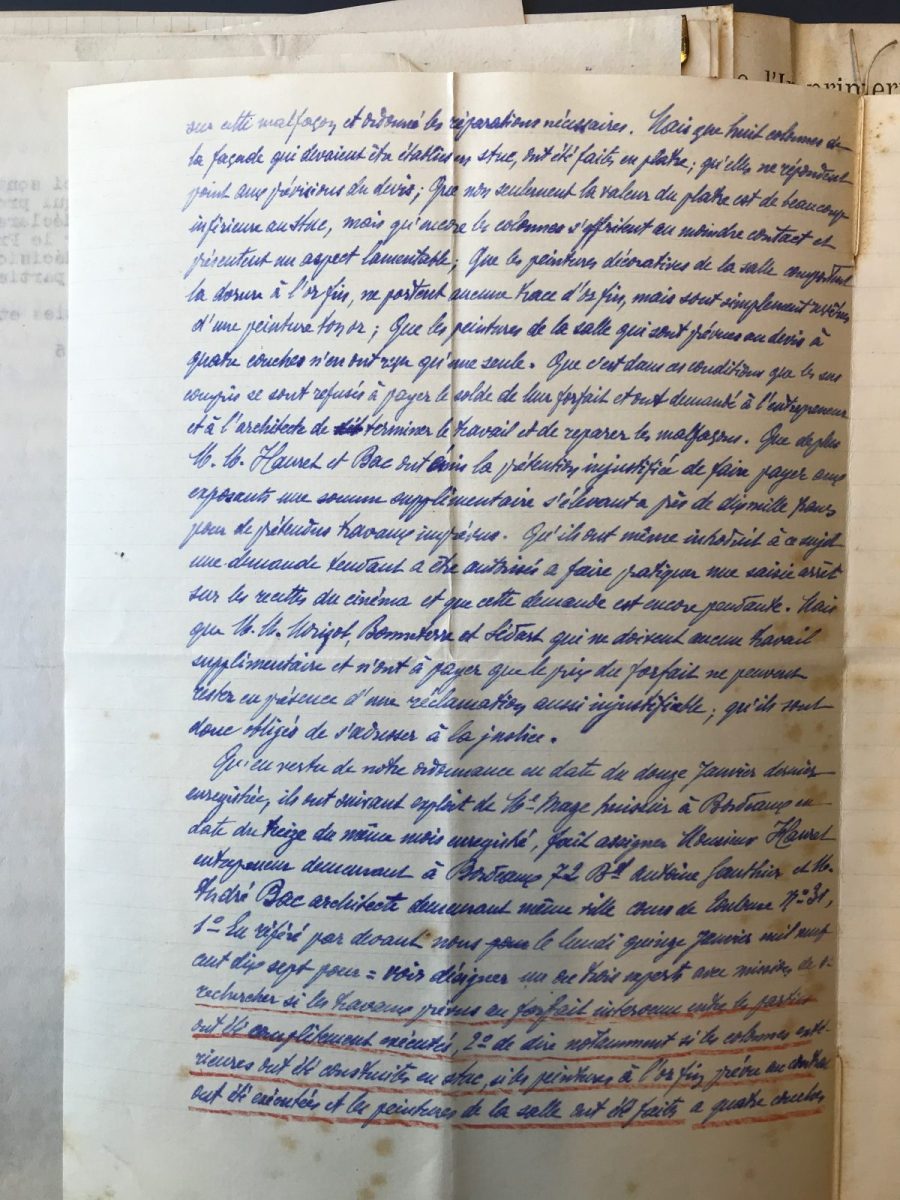 sur cette malfaçon et ordonné les réparations nécessaires. Mais que huit colonnes de
la façade qui devaient être établies en stuc, ont été faits en platre; qu'elles ne répondent
point aux prévisions du devis; Que non seulement la valeur du platre est de beaucoup
inférieure au stuc, mais qu'encore les colonnes s'effritent au moindre contact et
présentent un aspect lamentable; Que les peintures décoratives de la salle comportant
la dorure à l'or fin, ne portent aucune trace d'or fin, mais sont simplement
d'une peinture ton or; Que les peintures de la salle qui sont prévues au devis à
quatre couches n'en ont reçu qu'une seule. Que c'est dans ces conditions que les sus
compris se sont refusés à payer le solde de leur forfait et ont demandé à l'entrepreneur
et à l'architecte de terminer le travail et de reparer les malfaçons. Que de plus
M. M. Hauret et Bac ont émis la prétention injustifiée de faire payer aux
exposants une somme supplémentaire s'élevant a près de dix mille francs
pour de prétendus travaux imprévus. Qu'ils ont même introduit à ce sujet
une demande tendant a être autorisés a faire pratiquer une saisie arrêt
sur les recettes du cinéma et que cette demande est encore pendante. Mais
que M. M. Bonneterre et qui ne doivent aucun travail
supplémentaire et n'ont à payer que le prix du forfait ne peuvent
rester en présence d'une réclamation aussi injustifiable; qu'ils sont
donc obligés de s'adresser à la justice.
Qu'en vertu de notre ordonnance en date du douze Janvier dernier
enregistrée, ils ont suivant exploit de Me huissier à Bordeaux en
date du treize du même mois enregistré, fait assigner Monsieur Hauret
entrepreneur demeurant à Bordeaux 72 Bd Antoine Gauthier et M.
André Bac architecte demeurant même ville cours de Toulouse No 31,
1o En référé par devant nous pour le lundi quinze Janvier mil neuf
cent dix sept pour = voir désigner un ou trois experts avec mission de o-
rechercher si les travaux prévus au forfait intervenu entre les parties
ont été complètement exécutés, 2o de dire notamment si les colonnes exté-
rieures ont été construites en stuc, si les peintures à l'or fin prévu au contrat
ont été exécutées et les peintures de la salle ont été faits a quatre couches